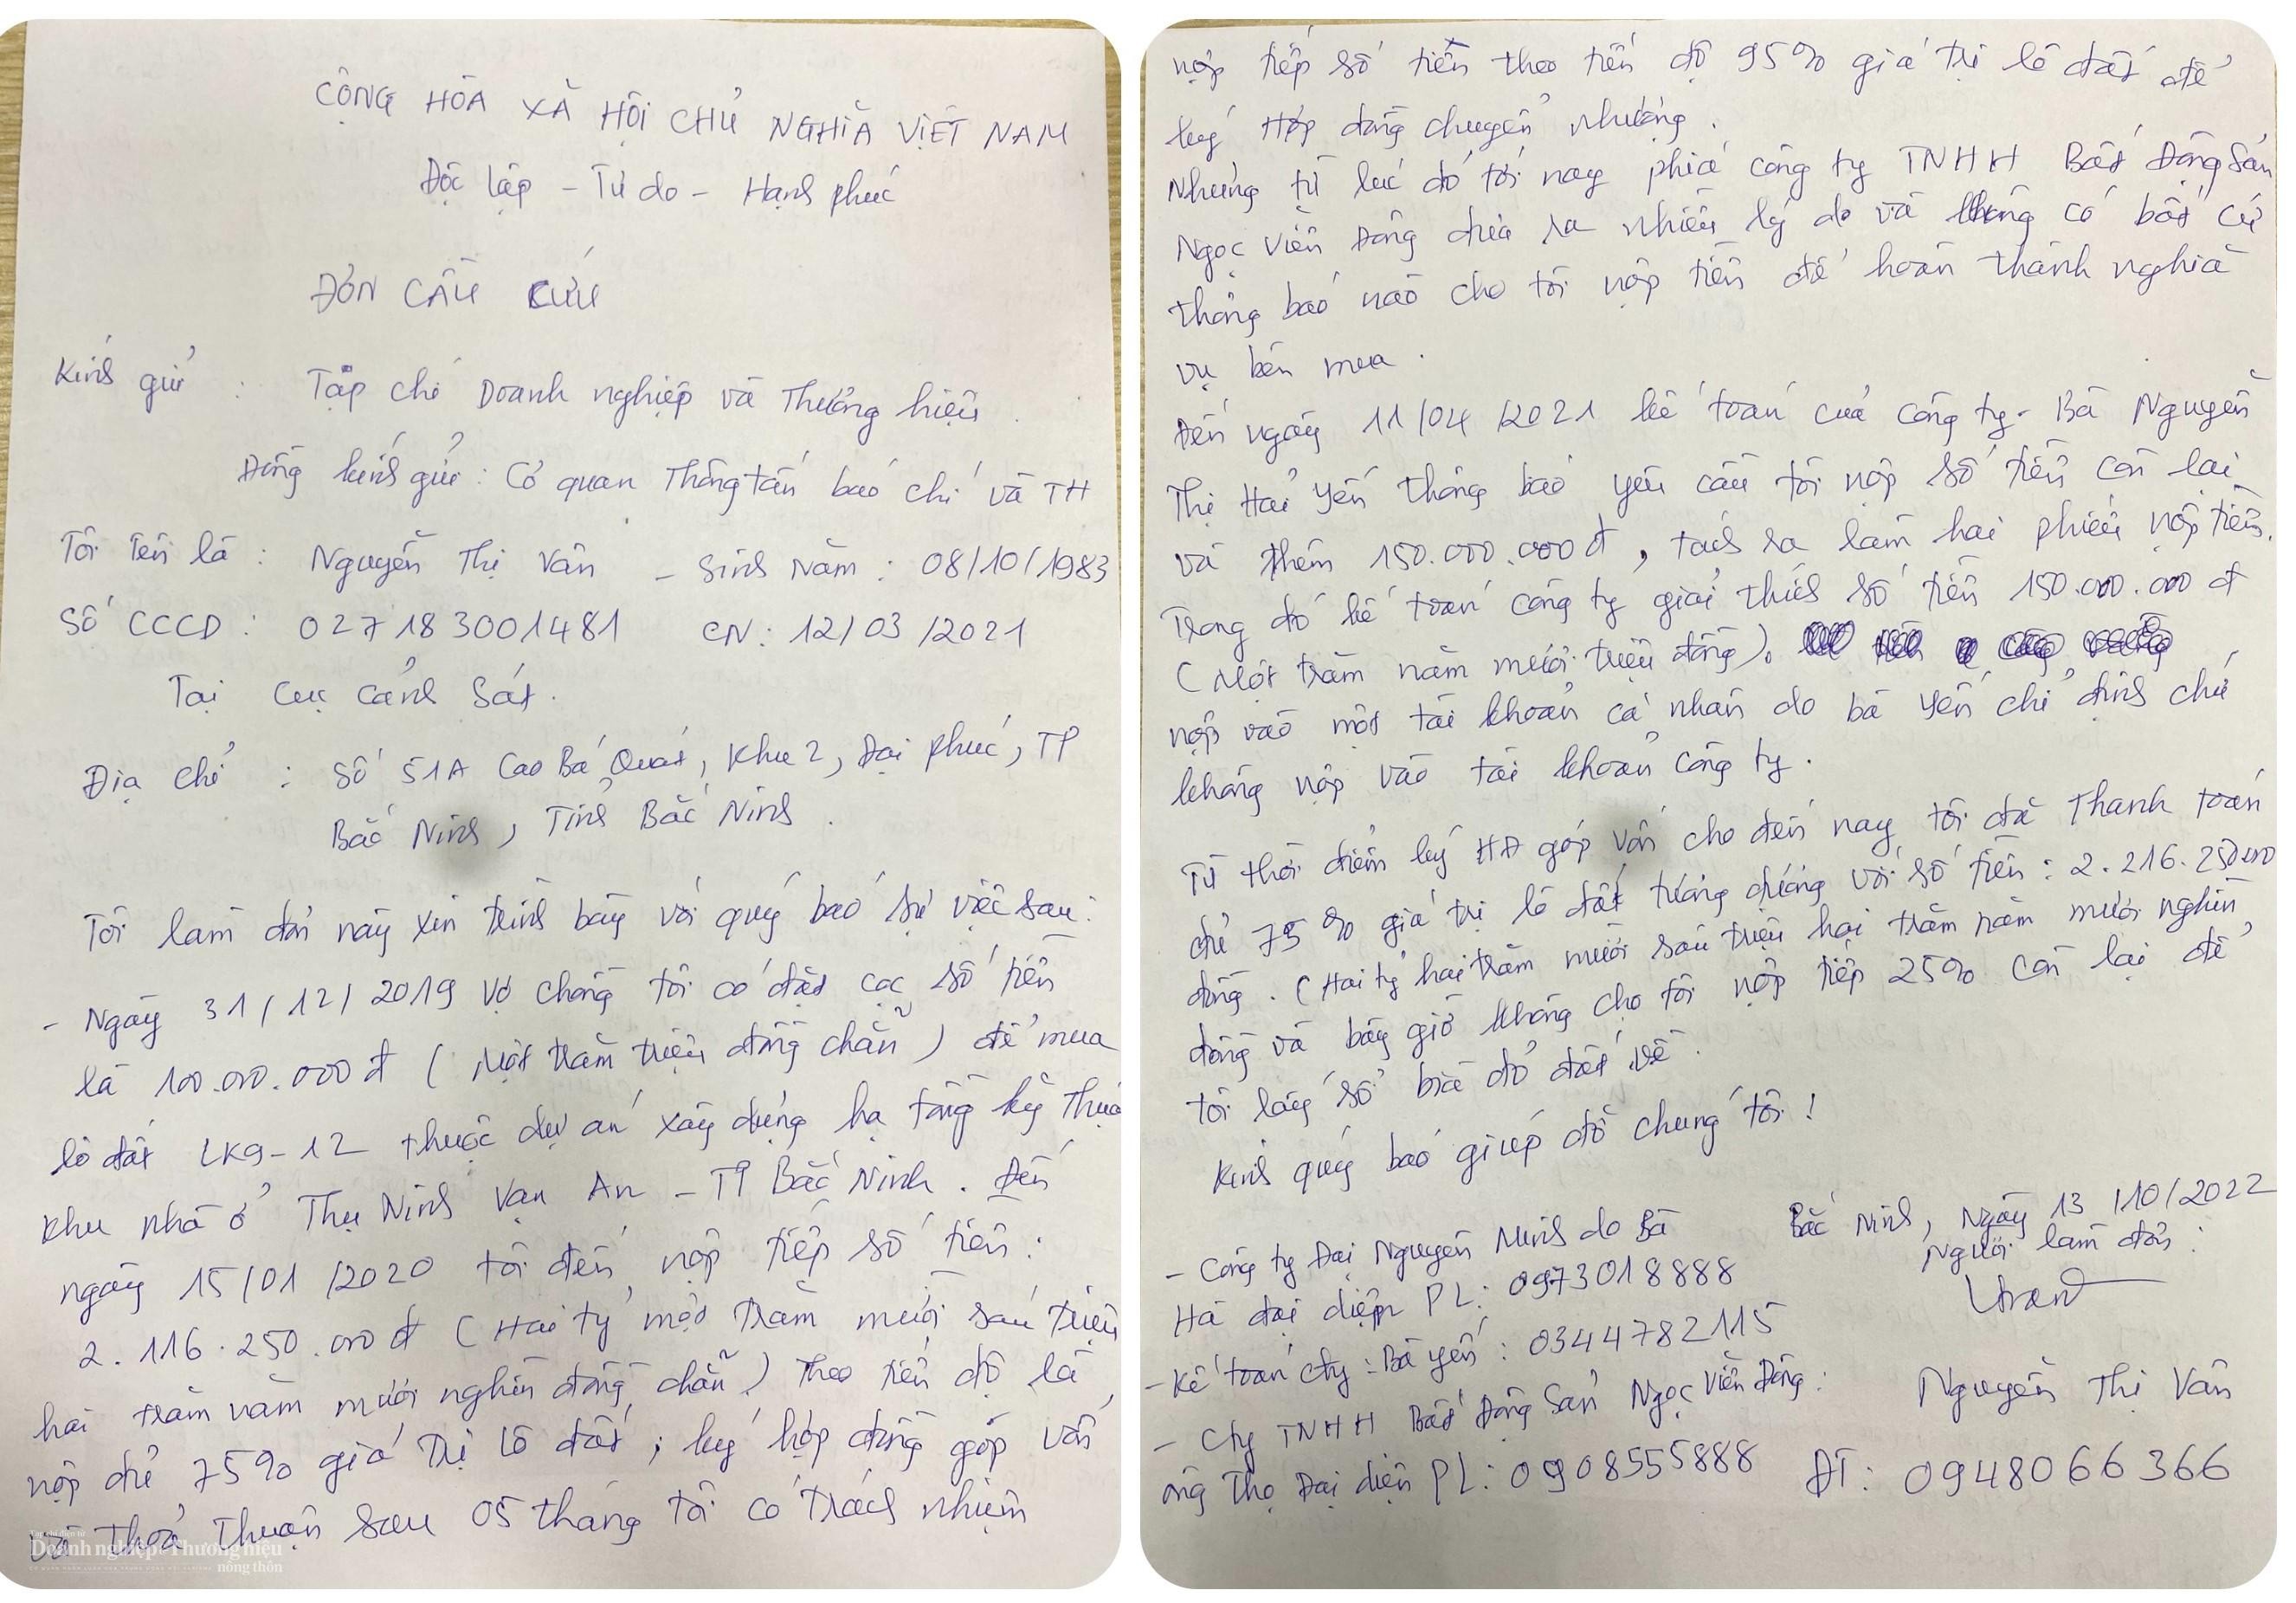 CỘNG HÒA XÃ HỘI CHỦ NGHĨA VIỆT NAM
Độc lập - Tự do - Hạnh phúc
ĐƠN CẦU CỨU
Kính gửi : Tạp chí Doanh nghiệp và Thương hiệu.
Đồng kính gửi: Cơ quan Thông tấn báo chí và TH
Tôi tên là : Nguyễn Thị Vân - Sinh năm : 08/10/1983
Số CCCD : 027183001481 CN: 12/03/2021
Tại Cục Cảnh Sát.
Địa chỉ : Số 51A Cao Bá Quát, Khu 2, Đại Phúc, TP
Bắc Ninh, Tỉnh Bắc Ninh.
Tôi làm đơn này xin trình bày với quý báo sự việc sau:
- Ngày 31/12/2019 vợ chồng tôi có đặt cọc số tiền
là 100.000.000 đ ( Một trăm triệu đồng chẵn ) để mua
lô đất LK9-12 thuộc dự án xây dựng hạ tầng kỹ thuậ
khu nhà ở Thụ Ninh Vạn An - TP Bắc Ninh. Đến
ngày 15/01/2020 tôi đến nộp tiếp số tiền:
2.116.250.000 đ ( Hai tỷ một trăm mười sáu triệu
hai trăm năm mươi nghìn đồng chẵn ) Theo tiến độ là
nộp đủ 75% giá trị lô đất, ký hợp đồng góp vốn
và thoả thuận sau 05 tháng tôi có trách nhiệm
Tạp chí điện tử
Doanh nghiệp & Thương hiệu
nông thôn
nộp tiếp số tiền theo tiến độ 95% giá trị lô đất để
ký Hợp đồng chuyển nhượng.
Nhưng từ lúc đó tới nay phía công ty TNHH Bất Động Sản
Ngọc Viễn Đông đưa ra nhiều lý do và không có bất cứ
thông báo nào cho tôi nộp tiền để hoàn thành nghĩa
vụ bên mua.
Đến ngày 11/04/2021 kế toán của công ty - Bà Nguyễn
Thị Hải Yến thông báo yêu cầu tôi nộp số tiền còn lại
và thêm 150.000.000đ, tách ra làm hai phiếu nộp tiền.
Trong đó kế toán công ty giải thích số tiền 150.000.000 đ
( Một trăm năm mươi triệu đồng).
nộp vào một tài khoản cá nhân do bà Yến chỉ định chứ
không nộp vào tài khoản công ty.
Từ thời điểm ký HĐ góp vốn cho đến nay tôi đã thanh toán
đủ 75% giá trị lô đất tương đương với số tiền : 2.216.250.000
đồng. ( Hai tỷ hai trăm mười sáu triệu hai trăm năm mươi nghìn
đồng và bây giờ không cho tôi nộp tiếp 25% còn lại để
tôi lấy sổ bìa đỏ đất về.
Kính quý báo giúp đỡ chúng tôi !
Bắc Ninh, Ngày 13/10/2022
Người làm đơn:
- Công ty Đại Nguyên Minh do Bà
Hà đại diện PL: 0973018888
- Kế toán cty : Bà Yến : 0344782115
- Cty TNHH Bất Động Sản Ngọc Viễn Đông:
ông Thọ Đại diện PL: 0908555888
Nguyễn Thị Vân
ĐT: 0948066366